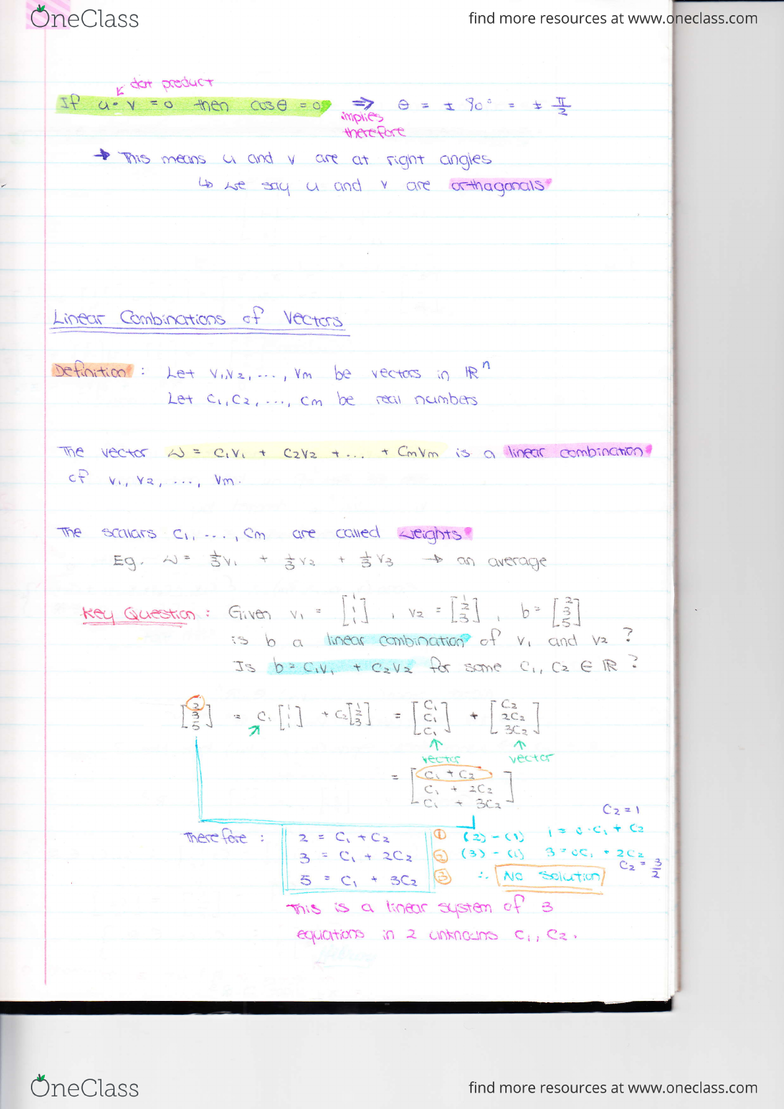 OneClass
find more resources at www.oneclass.com
dot product
If u · v = 0 then cosθ = 0 ⇒ θ = ± 90° = ± π/2
implies
therefore
→ This means u and v are at right angles
↳ we say u and v are orthagonals
Linear Combinations of Vectors
Definition : Let v1,v2, ..., vm be vectors in ℝⁿ
Let c1, c2, ..., cm be real numbers
The vector w = c1v1 + c2v2 + ... + cmvm is a linear combination
of v1, v2, ..., vm.
The scalars c1, ..., cm are called weights
Eg. w = 1/3 v1 + 1/3 v2 + 1/3 v3 → an average
Key Question : Given v1 = [1 1 1], v2 = [1 2 3], b = [2 3 5]
is b a linear combination of v1 and v2 ?
Is b = c1v1 + c2v2 for some c1, c2 ∈ ℝ ?
[2 3 5] = c1 [1 1 1] + c2 [1 2 3] = [c1 c1 c1] + [c2 2c2 3c2]
vector vector
= [c1 + c2 c1 + 2c2 c1 + 3c2]
c2 = 1
Therefore : 2 = c1 + c2 ① (2) - (1) 1 = 0·c1 + c2
3 = c1 + 2c2 ② (3) - (1) 3 = 0c1 + 2c2
c2 = 3/2
5 = c1 + 3c2 ③ ∴ No solution
This is a linear system of 3
equations in 2 unknowns c1, c2.
OneClass
find more resources at www.oneclass.com